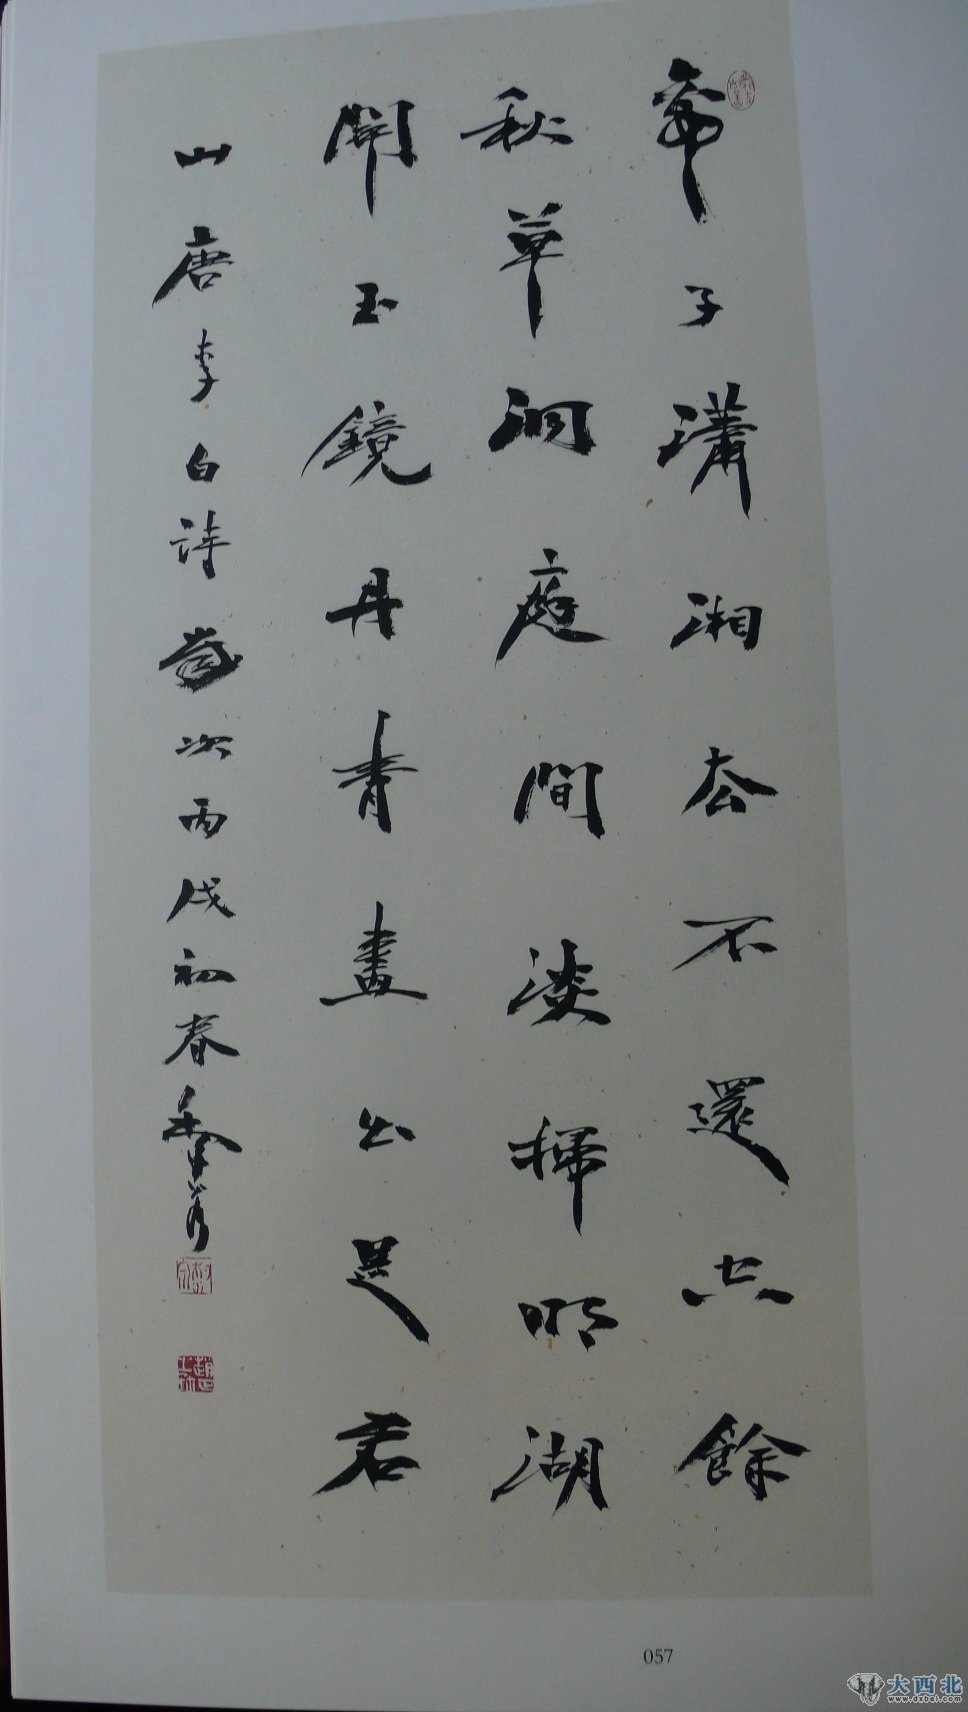 帝子瀟湘去不還空餘
秋草洞庭間淡掃明湖
開玉鏡丹青畫出是君
山唐李白詩歲次丙戌初春
057
大西北
www.dxbei.com